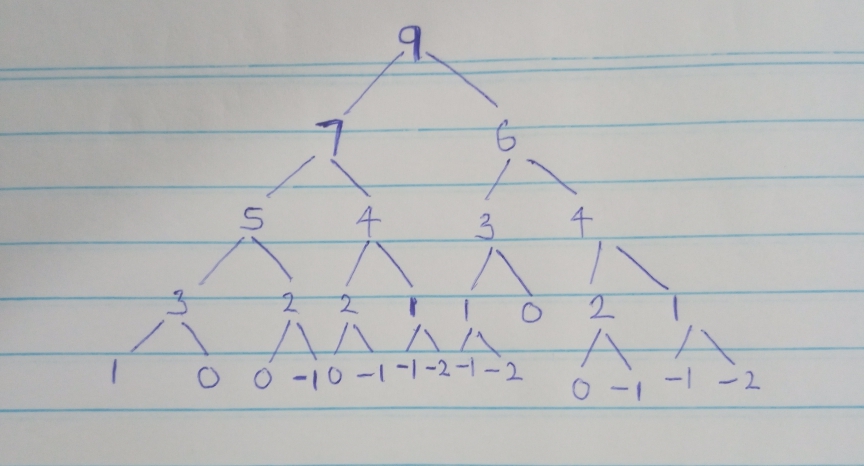 9
7 6
5 4 3 4
3 2 2 1 1 0 2 1
1 0 0 -1 0 -1 -1 -2 -1 -2 0 -1 -1 -2